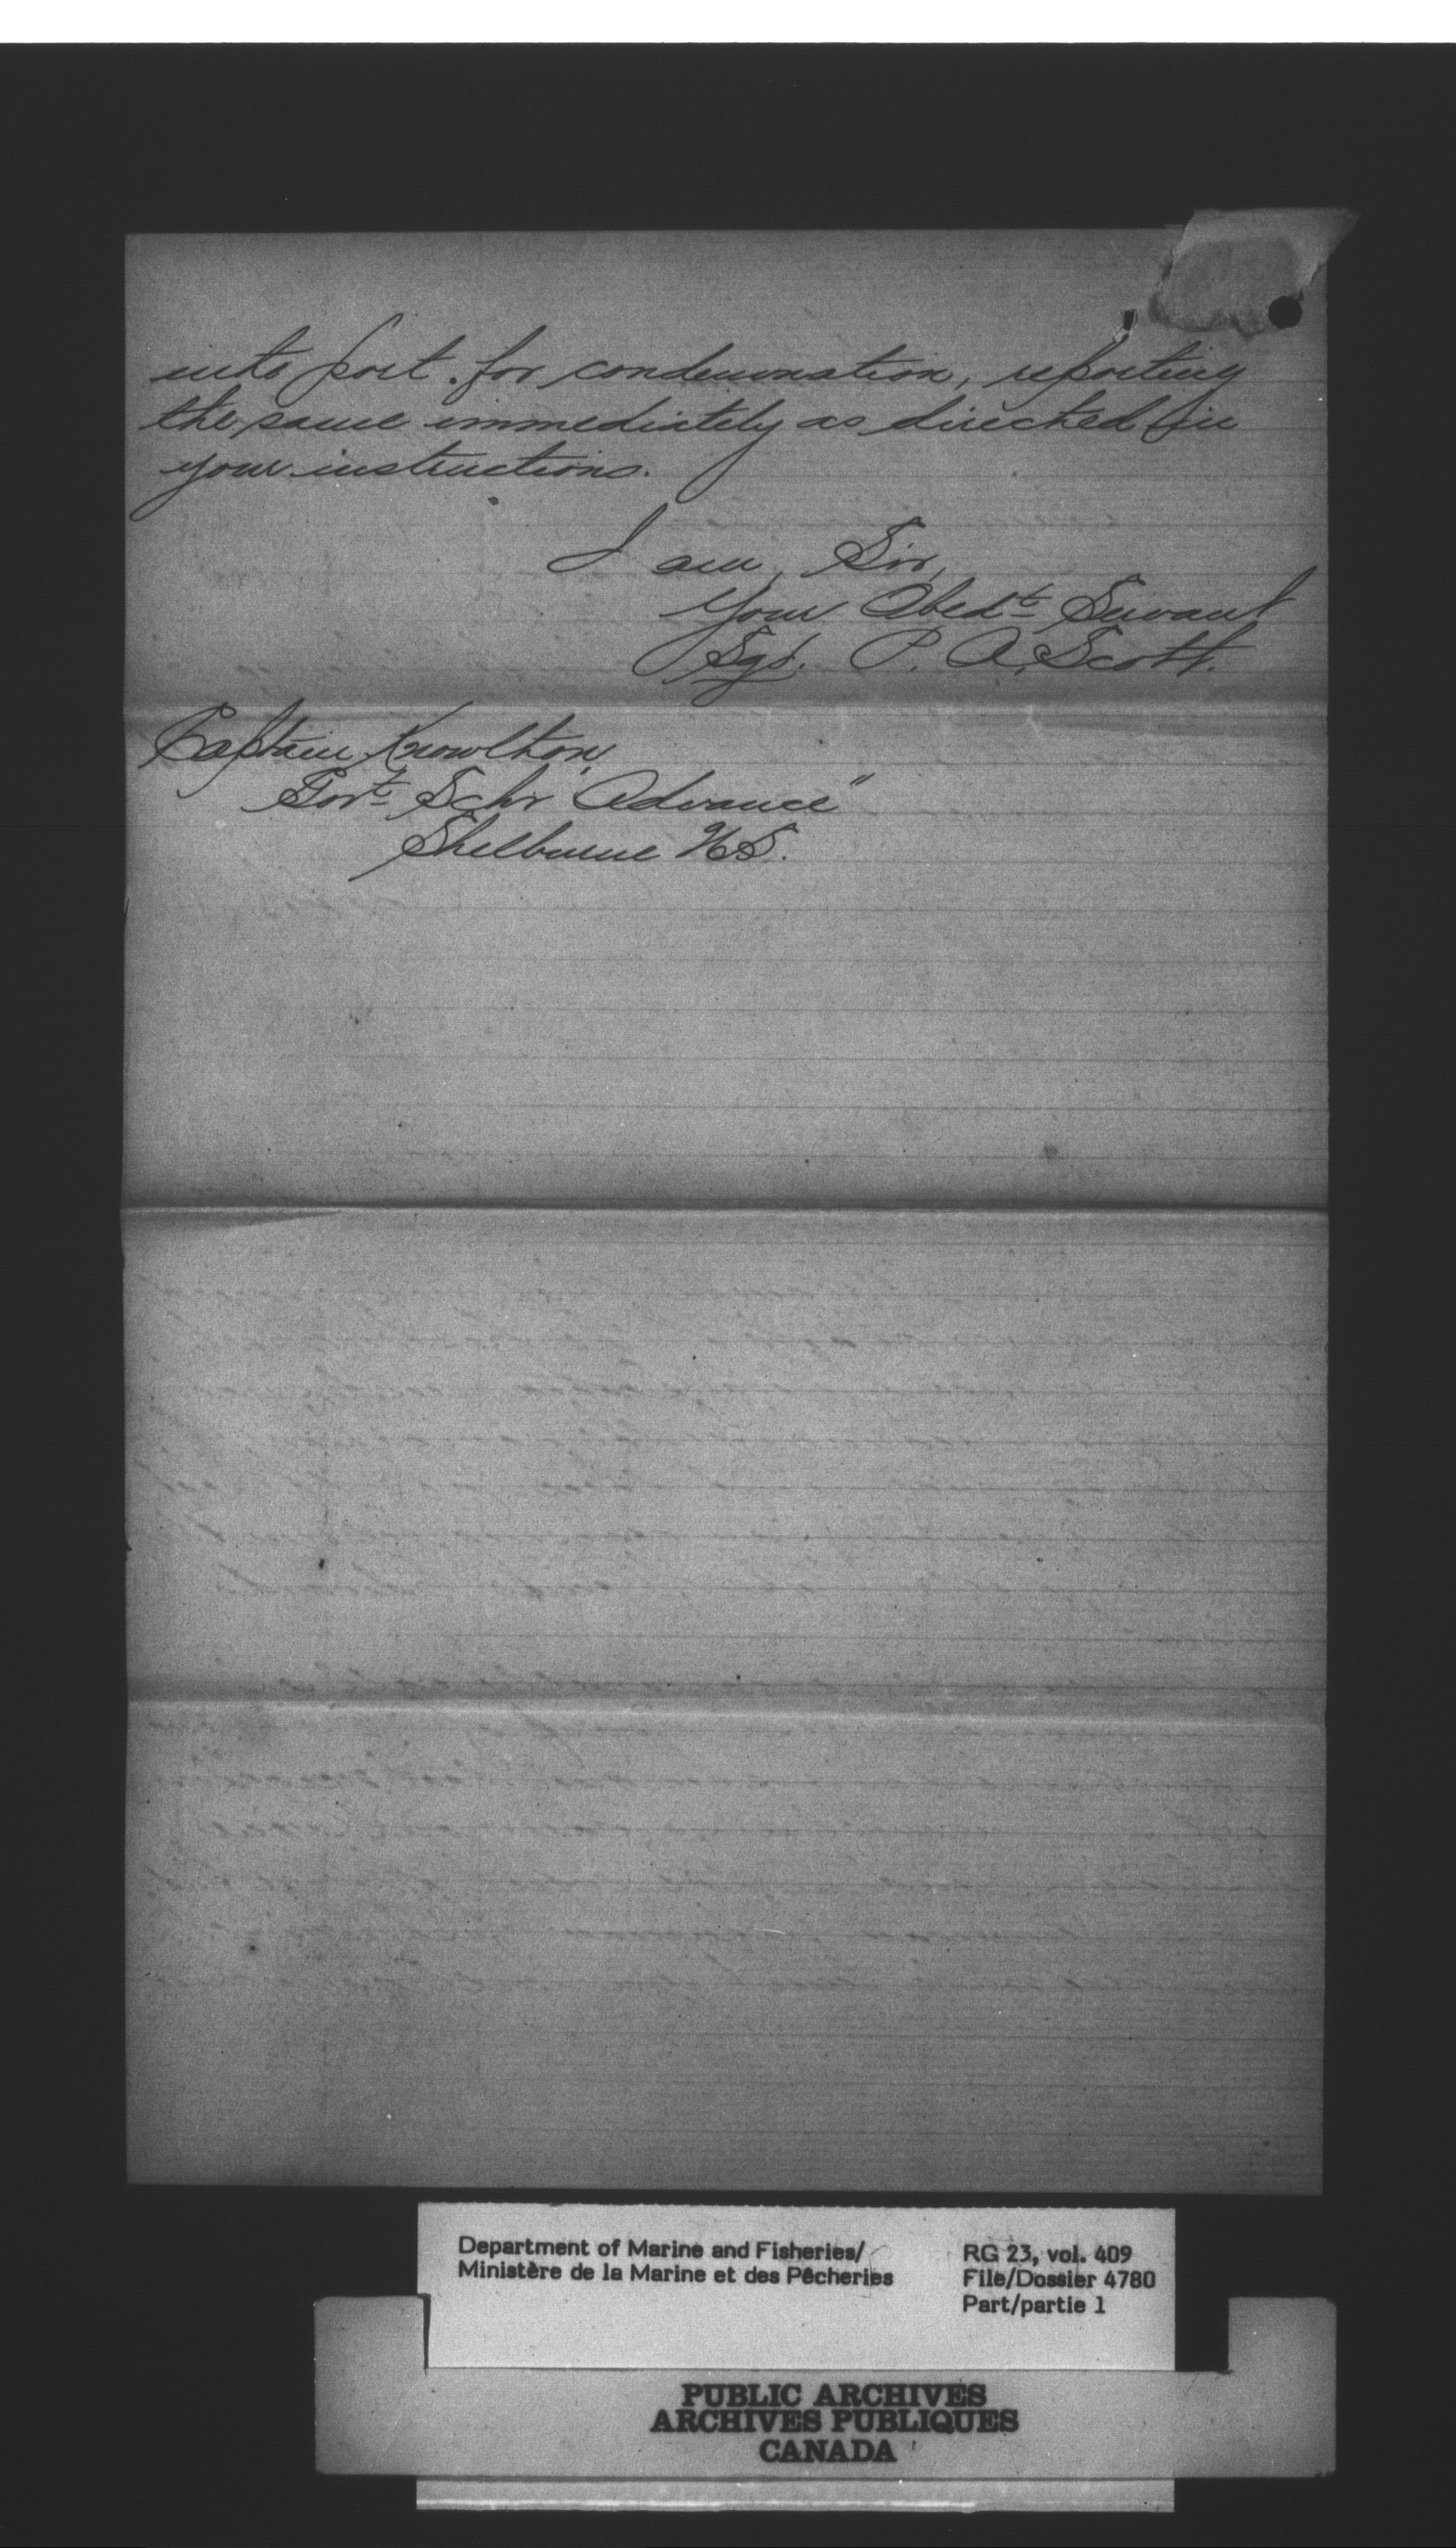 into port. for condemnation, reporting
the same immediately as directed in
your instructions.
I am, Sir,
Your Obedt Servant
Sgd. P. A. Scott.
Captain Knowlton,
Govt Schr "Advance"
Shelburne NS.
Department of Marine and Fisheries/
Ministère de la Marine et des Pêcheries
RG 23, vol. 409
File/Dossier 4780
Part/partie 1
PUBLIC ARCHIVES
ARCHIVES PUBLIQUES
CANADA